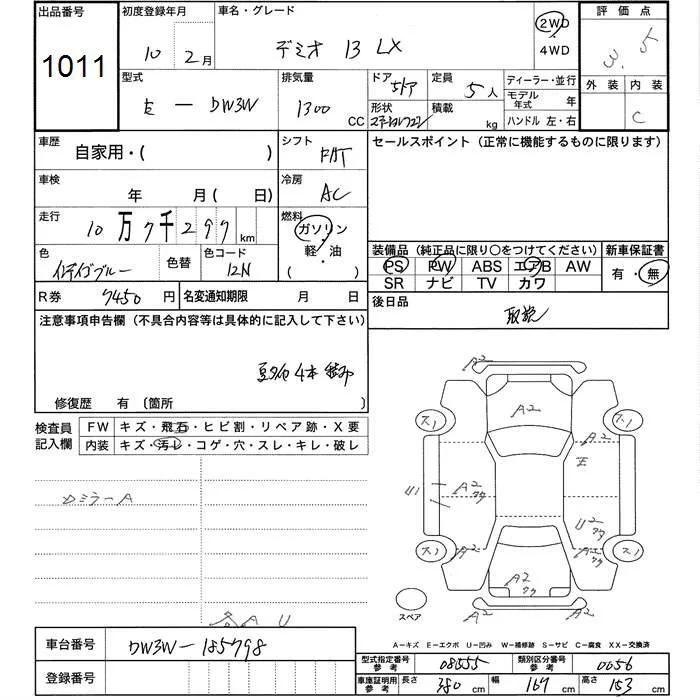 出品番号 初度登録年月 車名・グレード 2WD 評価点
1011 10年2月 デミオ 13 LX 4WD 3.5
外装 内装
C
型式 排気量 ドア 定員 ディーラー・並行
E — DW3W 1300 CC 5ドア 5人 モデル年式 年
形状 積載 kg ハンドル 左・右
ステーションワゴン
車歴 自家用・( ) シフト FAT セールスポイント (正常に機能するものに限ります)
車検 年 月 ( 日) 冷房 AC
走行 10万7千297 km 燃料 ガソリン
軽・油
( )
色 色替 色コード 12N
装備品 (純正品に限り〇をつけてください) 新車保証書
PS PW ABS エアB AW 有・無
SR ナビ TV カワ
R券 7450円 名変通知期限 月 日 後日品
取説
注意事項申告欄 (不具合内容等は具体的に記入して下さい)
4本
修復歴 有 〔箇所 〕
検査員記入欄 FW キズ・飛石・ヒビ割・リペア跡・X要
内装 キズ・汚レ・コゲ・穴・スレ・キレ・破レ
ミラーA
A2
A2
ス1 ス1
A2
E
U1 A2
U2
ス1 A2 A2 ス1
A2
A2
スペア
A U
A−キズ E−エクボ U−凹み W−補修跡 S−サビ C−腐食 XX−交換済
車台番号 DW3W−185798
登録番号
型式指定番号 参考 08555 類別区分番号 参考 0056
車庫証明用 参考 長さ 380 cm 幅 167 cm 高さ 153 cm